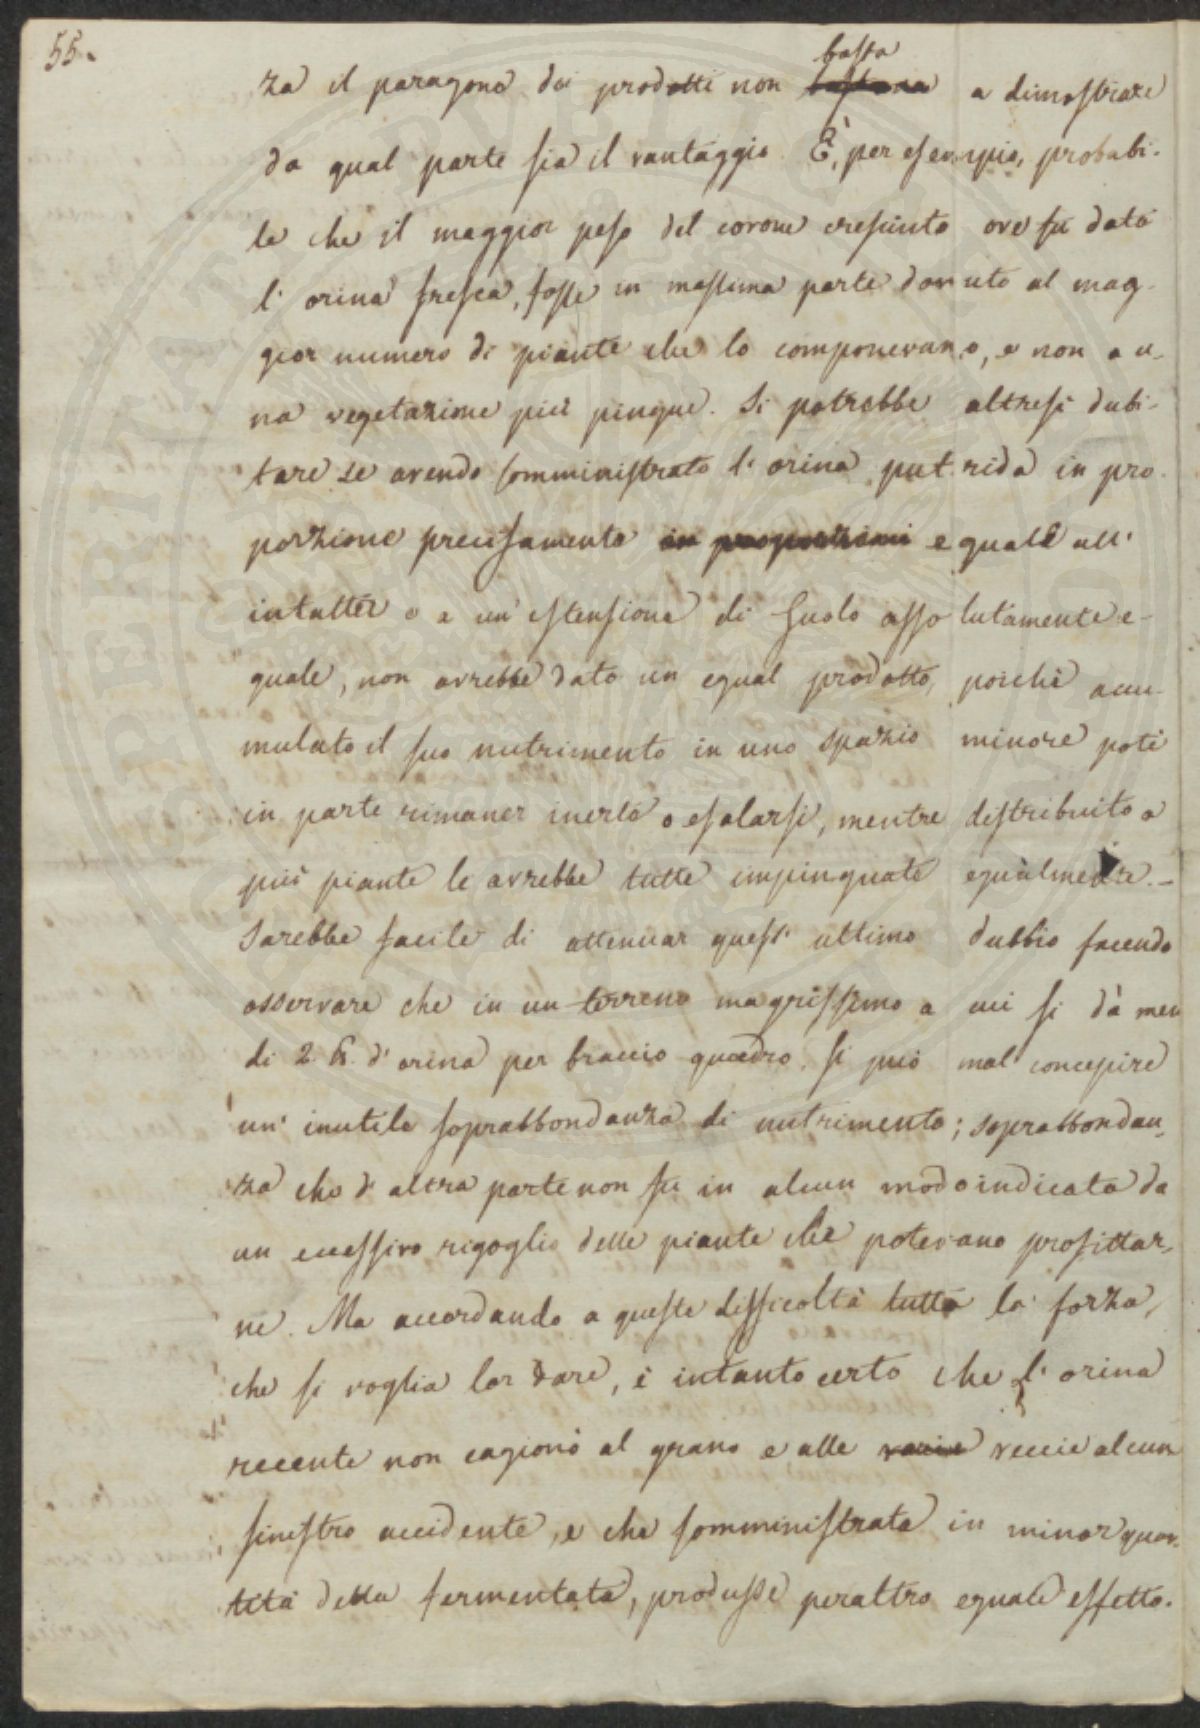 55.
basta
za il paragone dei prodotti non bastano a dimostrare
da qual parte sia il vantaggio. È, per esempio, probabi-
le che il maggior peso del covone cresciuto ove fu data
l'orina fresca, fosse in massima parte dovuto al mag-
gior numero di piante che lo componevano, e non a u-
na vegetazione più pingue. Si potrebbe altresì dubi-
tare se avendo somministrato l'orina putrida in pro-
porzione precisamente in proporzioni eguale all'
intutter o a un'estensione di suolo assolutamente e-
guale, non avrebbe dato un egual prodotto, poichè accu-
mulato il suo nutrimento in uno spazio minore potè
in parte rimaner inerte o esalarsi, mentre distribuito a
più piante le avrebbe tutte impinguate egualmente. -
Sarebbe facile di attenuar quest'ultimo dubbio facendo
osservare che in un terreno magrissimo a cui si dà men
di 2 ℔. d'orina per braccio quadro, si può mal concepire
un'inutile soprabbondanza di nutrimento; soprabbondan-
za che d'altra parte non fu in alcun modo indicata da
un eccessivo rigoglio delle piante che potevano profittar-
ne. Ma accordando a queste difficoltà tutta la forza,
che si voglia lor dare, è intanto certo che l'orina
recente non cagionò al grano e alle vecie veccie alcun
sinistro accidente, e che somministrata in minor quan-
tità della fermentata, produsse peraltro eguale effetto.